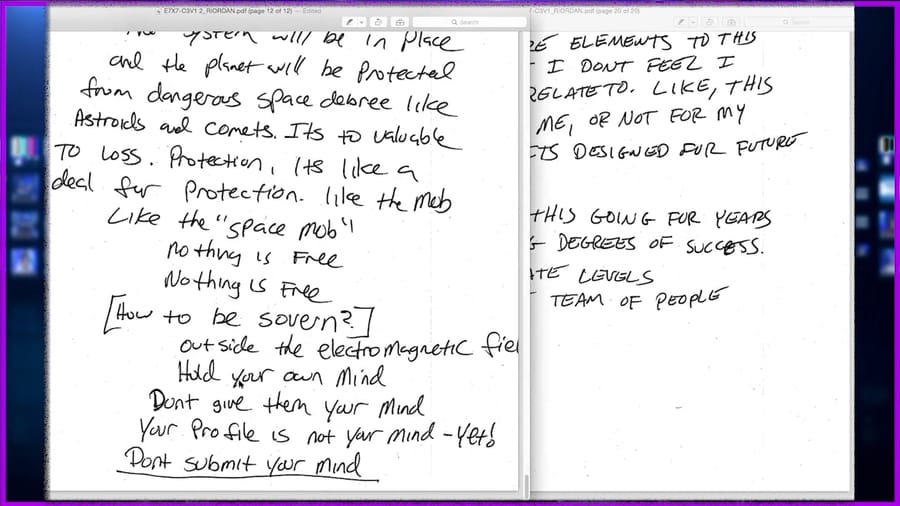 E7X7-C3V1 2_RIORDAN.pdf (page 12 of 12) — Edited
Search
The system will be in Place
and the planet will be Protected
from dangerous space debree like
Astroids and comets. Its to valuable
TO LOSS. Protection, Its like a
deal for Protection. like the Mob
Like the "space mob"!
Nothing is Free
Nothing is Free
[How to be sovern?]
outside the electromagnetic fiel
Hold your own Mind
Dont give them your Mind
Your Profile is not your mind - Yet!
Dont submit your mind
-C3V1_RIORDAN.pdf (page 20 of 20)
Search
RE ELEMENTS TO THIS
I DONT FEEL I
RELATE TO. LIKE, THIS
ME, OR NOT FOR MY
ITS DESIGNED FOR FUTURE
THIS GOING FOR YEARS
G DEGREES OF SUCCESS.
ATE LEVELS
TEAM OF PEOPLE